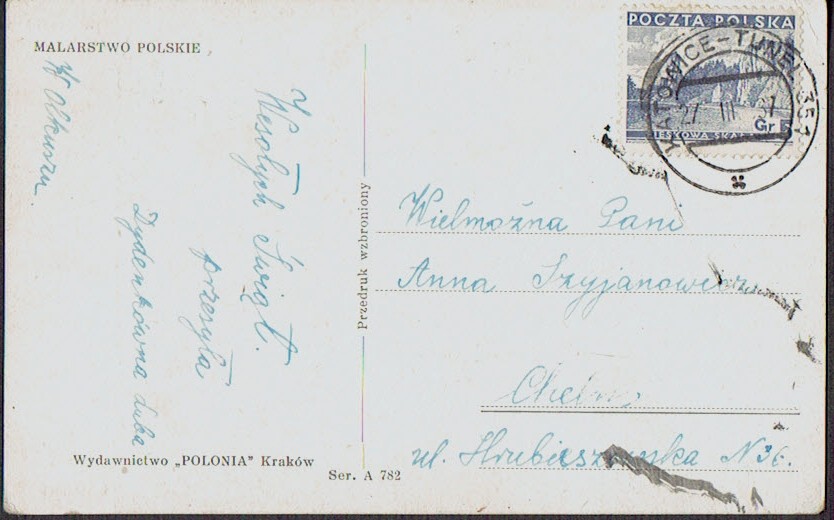 MALARSTWO POLSKIE
W Olkuszu
Wesołych Świąt.
przesyła
Dydenkówna Luba
Wydawnictwo „POLONIA” Kraków
Ser. A 782
Przedruk wzbroniony
POCZTA POLSKA
Gr 5
KATOWICE-TUNEL 351
27 III 37
Wielmożna Pani
Anna Szyjanowicz
Chełm
ul. Hrubieszowska N 36.